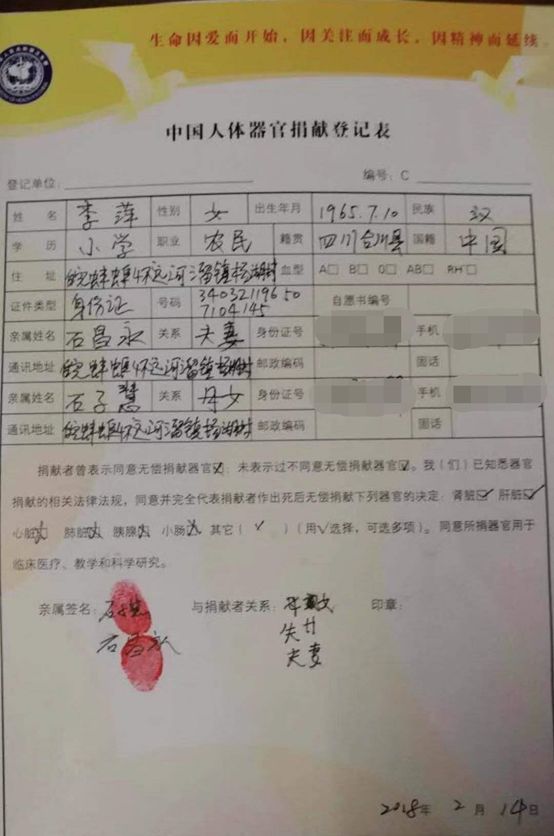 生命因爱而开始，因关注而成长，因精神而延续
中国人体器官捐献登记表
登记单位： 编号：C
姓名 李萍 性别 女 出生年月 1965.7.10 民族 汉
学历 小学 职业 农民 籍贯 四川合川县 国籍 中国
住址 皖蚌埠怀远河溜镇杨湖村 血型 A□ B□ O□ AB□ RH□
证件类型 身份证 号码 自愿书编号
亲属姓名 石昌永 关系 夫妻 身份证号 手机
通讯地址 皖蚌埠怀远河溜镇杨湖村 邮政编码 固话
亲属姓名 石子慧 关系 母女 身份证号 手机
通讯地址 皖蚌埠怀远河溜镇杨湖村 邮政编码 固话
捐献者曾表示同意无偿捐献器官☑；未表示过不同意无偿捐献器官☑。我（们）已知悉器官
捐献的相关法律法规，同意并完全代表捐献者作出死后无偿捐献下列器官的决定：肾脏☑ 肝脏☑
心脏 肺脏 胰腺 小肠 其它（ ）（用√选择，可选多项）。同意所捐器官用于
临床医疗、教学和科学研究。
亲属签名： 与捐献者关系： 印章：
石昌永
夫妻
2018年 2月 14日